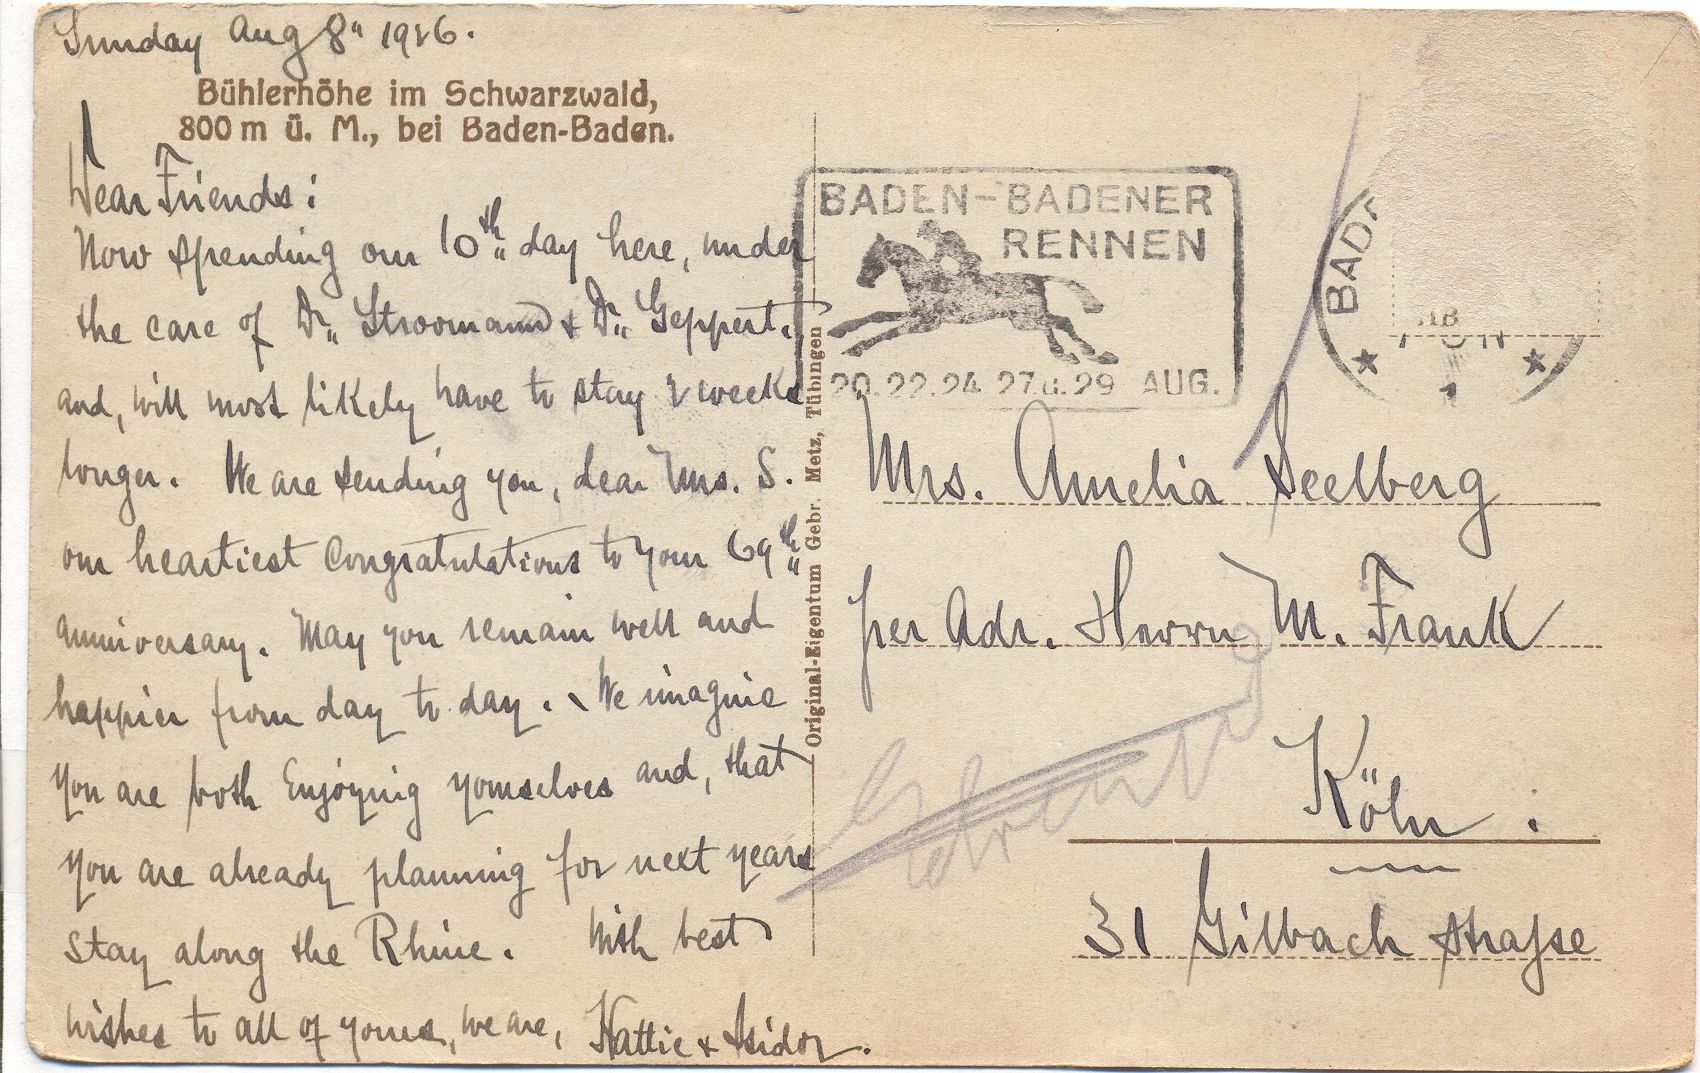 Sunday Aug 8" 1926.
Bühlerhöhe im Schwarzwald,
800 m ü. M., bei Baden-Baden.
Dear Friends:
Now spending our 10th day here, under
the care of Dr. Stroomann & Dr. Geppert,
and, will most likely have to stay 2 weeks
longer. We are sending you, dear Mrs. S.
our heartiest Congratulations to your 69th
anniversary. May you remain well and
happier from day to day. We imagine
you are both Enjoying yourselves and, that
you are already planning for next years
stay along the Rhine. With best
wishes to all of yours, we are, Hattie & Isidor.
Original-Eigentum Gebr. Metz, Tübingen
BADEN-BADENER
RENNEN
20. 22. 24. 27. u. 29 AUG.
BADE
Mrs. Amelia Seelberg
per Adr. Herrn M. Frank
Köln :
31 Gilbach strasse